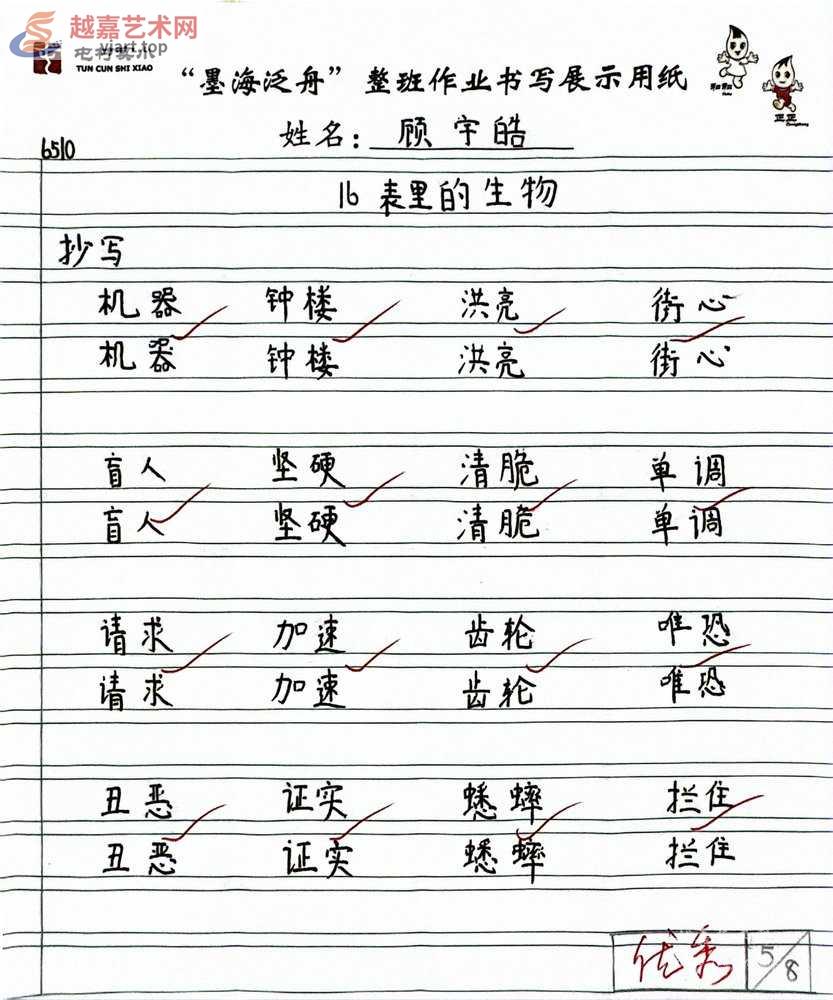 越嘉艺术网
yjart.top
TUN CUN SHI XIAO
“墨海泛舟”整班作业书写展示用纸
姓名：顾宇皓
6510
16 表里的生物
抄写
机器 钟楼 洪亮 街心
机器 钟楼 洪亮 街心
盲人 坚硬 清脆 单调
盲人 坚硬 清脆 单调
请求 加速 齿轮 唯恐
请求 加速 齿轮 唯恐
丑恶 证实 蟋蟀 拦住
丑恶 证实 蟋蟀 拦住
优秀 5/8